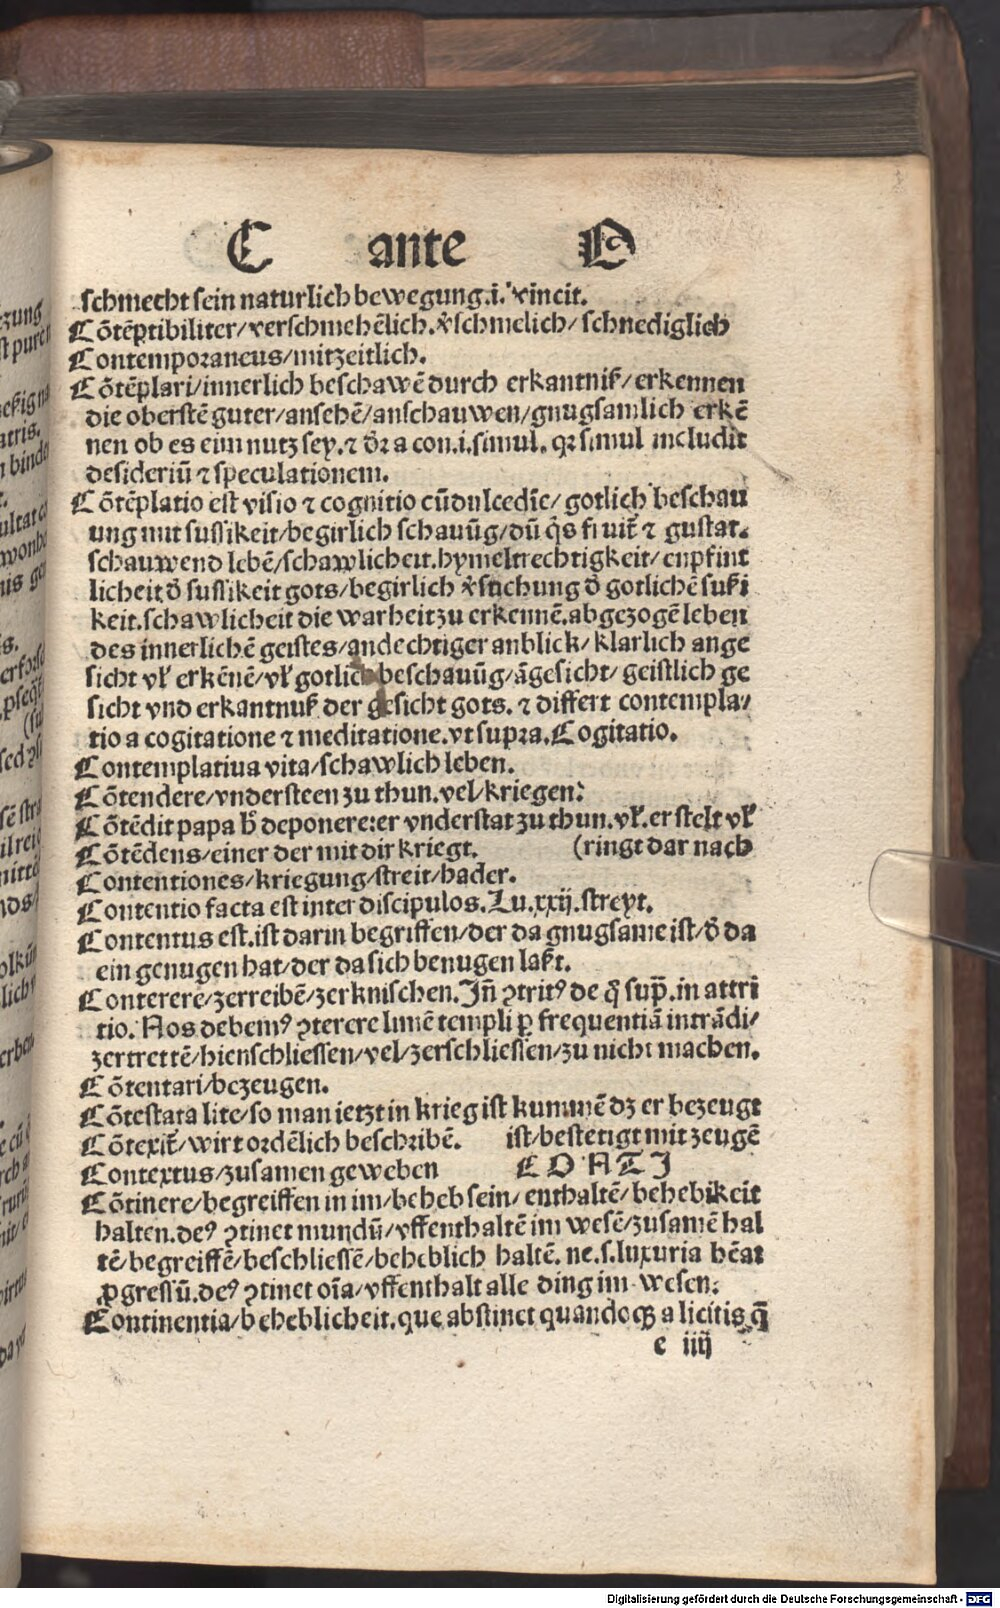 C ante O
schmecht sein naturlich bewegung.i. vincit.
Cōtēptibiliter/verschmehēlich.v̄schmelich/schnediglich
Contemporaneus/mitzeitlich.
Cōtēplari/innerlich beschawē durch erkantniß/erkennen
die oberstē guter/ansehē/anschauwen/gnugsamlich erkē
nen ob es eim nutz sey.⁊ dr̄ a con.i.simul. qꝛ simul includit
desideriū ⁊ speculationem.
Cōtēplatio est visio ⁊ cognitio cū dulcedīe/gotlich beschau
ung mit sussikeit/begirlich schauūg/dū q̄s fruit̄ ⁊ gustat.
schauwend lebē/schawlicheit.hymeltrechtigkeit/enpfint
licheit d̄ sussikeit gots/begirlich v̄suchung d̄ gotlichē sußi
keit.schawlicheit die warheit zu erkennē.abgezogē leben
des innerlichē geistes/andechtiger anblick/klarlich ange
sicht vł erkēnē/vł gotlich beschauūg/āgesicht/geistlich ge
sicht vnd erkantnuß der gesicht gots. ⁊ differt contempla/
tio a cogitatione ⁊ meditatione.vt supra.Cogitatio.
Contemplatiua vita/schawlich leben.
Cōtendere/vndersteen zu thun.vel/kriegen:
Cōtēdit papa h̄ deponere:er vnderstat zu thun.vł.er stelt vł
Cōtēdens/einer der mit dir kriegt. (ringt dar nach
Contentiones/kriegung/streit/hader.
Contentio facta est inter discipulos.Lu.xxij.streyt.
Contentus est.ist darin begriffen/der da gnugsame ist/d̄ da
ein genugen hat/der da sich benugen laßt.
Conterere/zerreibē/zerknischen.Jn̄ ꝯtritꝰ de q̄ sup̄.in attri
tio. Nos debemꝰ ꝯterere limē templi ꝑ frequentiā intrādi/
zertrettē/hienschliessen/vel/zerschliessen/zu nicht machen.
Cōtentari/bezeugen.
Cōtestata lite/so man ietzt in krieg ist kummē dz er bezeugt
Cōtexit̄/wirt ordēlich beschribē. ist/bestetigt mit zeugē
Contextus/zusamen geweben C O N T I
Cōtinere/begreiffen in im/beheb sein/enthaltē/behebikeit
halten.deꝰ ꝯtinet mundū/vffenthaltē im wesē/zusamē hal
tē/begreiffē/beschliessē/beheblich haltē. ne.s.luxuria hēat
ꝓgressū.deꝰ ꝯtinet oīa/vffenthalt alle ding im wesen:
Continentia/beheblicheit.que abstinet quandoqꝫ a licitis q̄
e iiij
Digitalisierung gefördert durch die Deutsche Forschungsgemeinschaft - DFG